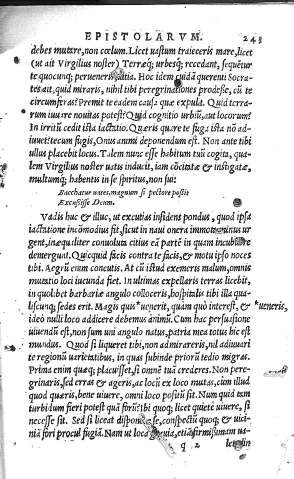 EPISTOLARVM. 243
debes mutare, non cœlum. Licet uastum traieceris mare, licet
(ut ait Virgilius noster) Terræq; urbesq; recedant, sequẽtur
te quocunq; perueneris uitia. Hoc idem cuidã querenti Socra-
tes ait, quid miraris, nihil tibi peregrinationes prodesse, cũ te
circumferas? Premit te eadem causa quæ expulit. Quid terra-
rum iuuare nouitas potest? Quid cognitio urbiũ, aut locorum?
In irritũ cedit ista iactatio. Quæris quare te fuga ista nõ ad-
iuuet? tecum fugis, Onus animi deponendum est. Non ante tibi
ullus placebit locus. Talem nunc esse habitum tuũ cogita, qua-
lem Virgilius noster uatis inducit, iam cõcitatæ & instigatæ,
multumq; habentis in se spiritus, non sui:
Bacchatur uates, magnum si pectore possit
Excussisse Deum.
Vadis huc & illuc, ut excutias insidens pondus, quod ipsa
iactatione incõmodius fit, sicut in naui onera immota minus ur
gent, inæqualiter conuoluta citius eã partẽ in quam incubuere
demergunt. Quicquid facis contra te facis, & motu ipso noces
tibi. Aegrũ enim concutis. At cũ istud exemeris malum, omnis
mutatio loci iucunda fiet. In ultimas expellaris terras licebit,
in quolibet barbariæ angulo colloceris, hospitalis tibi illa qua-
liscunq; sedes erit. Magis quis *uenerit, quàm quò interest, & *ueneris,
ideo nulli loco addicere debemus animũ. Cum hac persuasione
uiuendũ est, non sum uni angulo natus, patria mea totus hic est
mundus. Quod si liqueret tibi, non admirareris, nil adiuuari
te regionũ uarietatibus, in quas subinde priorũ tedio migras.
Prima enim quæq; placuisset, si omnẽ tuã crederes. Non pere-
grinaris, sed erras & ageris, ac locũ ex loco mutas, cùm illud
quod quæris, bene uiuere, omni loco positũ sit. Num quid tam
turbidum fieri potest quã forũ? ibi quoq; licet quietè uiuere, si
necesse sit. Sed si liceat disponere se, conspectũ quoq; & uici-
niã fori procul fugiã. Nam ut loca grauia, etiã firmissimam ua-
q 2 letudin